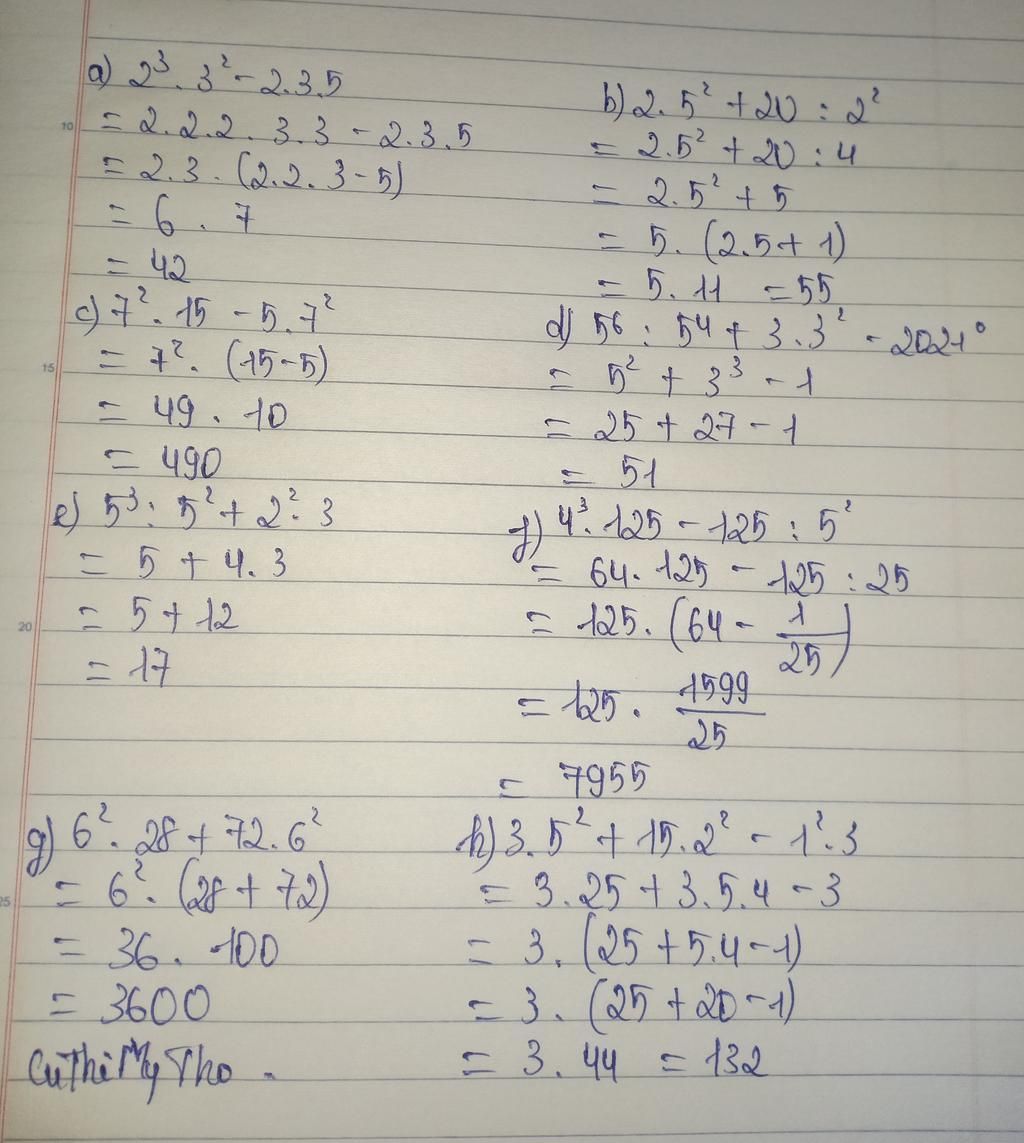 a) 2³. 3² - 2.3.5
= 2.2.2. 3.3 - 2.3.5
= 2.3. (2.2.3-5)
= 6 . 7
= 42
b) 2.5² + 20 : 2²
= 2.5² + 20 : 4
= 2.5² + 5
= 5. (2.5+1)
= 5. 11 = 55
c) 7². 15 - 5.7²
= 7². (15-5)
= 49. 10
= 490
d) 56 : 54 + 3.3² - 2021⁰
= 5² + 3³ - 1
= 25 + 27 - 1
= 51
e) 5³: 5² + 2².3
= 5 + 4.3
= 5 + 12
= 17
f) 4³.125 - 125 : 5²
= 64.125 - 125 : 25
= 125. (64 - 1/25)
= 125. 1599/25
= 7955
g) 6². 28 + 72.6²
= 6². (28+72)
= 36. 100
= 3600
h) 3.5² + 15.2² - 1².3
= 3.25 + 3.5.4 - 3
= 3. (25+5.4-1)
= 3. (25+20-1)
= 3. 44 = 132
CuThiMyTho.